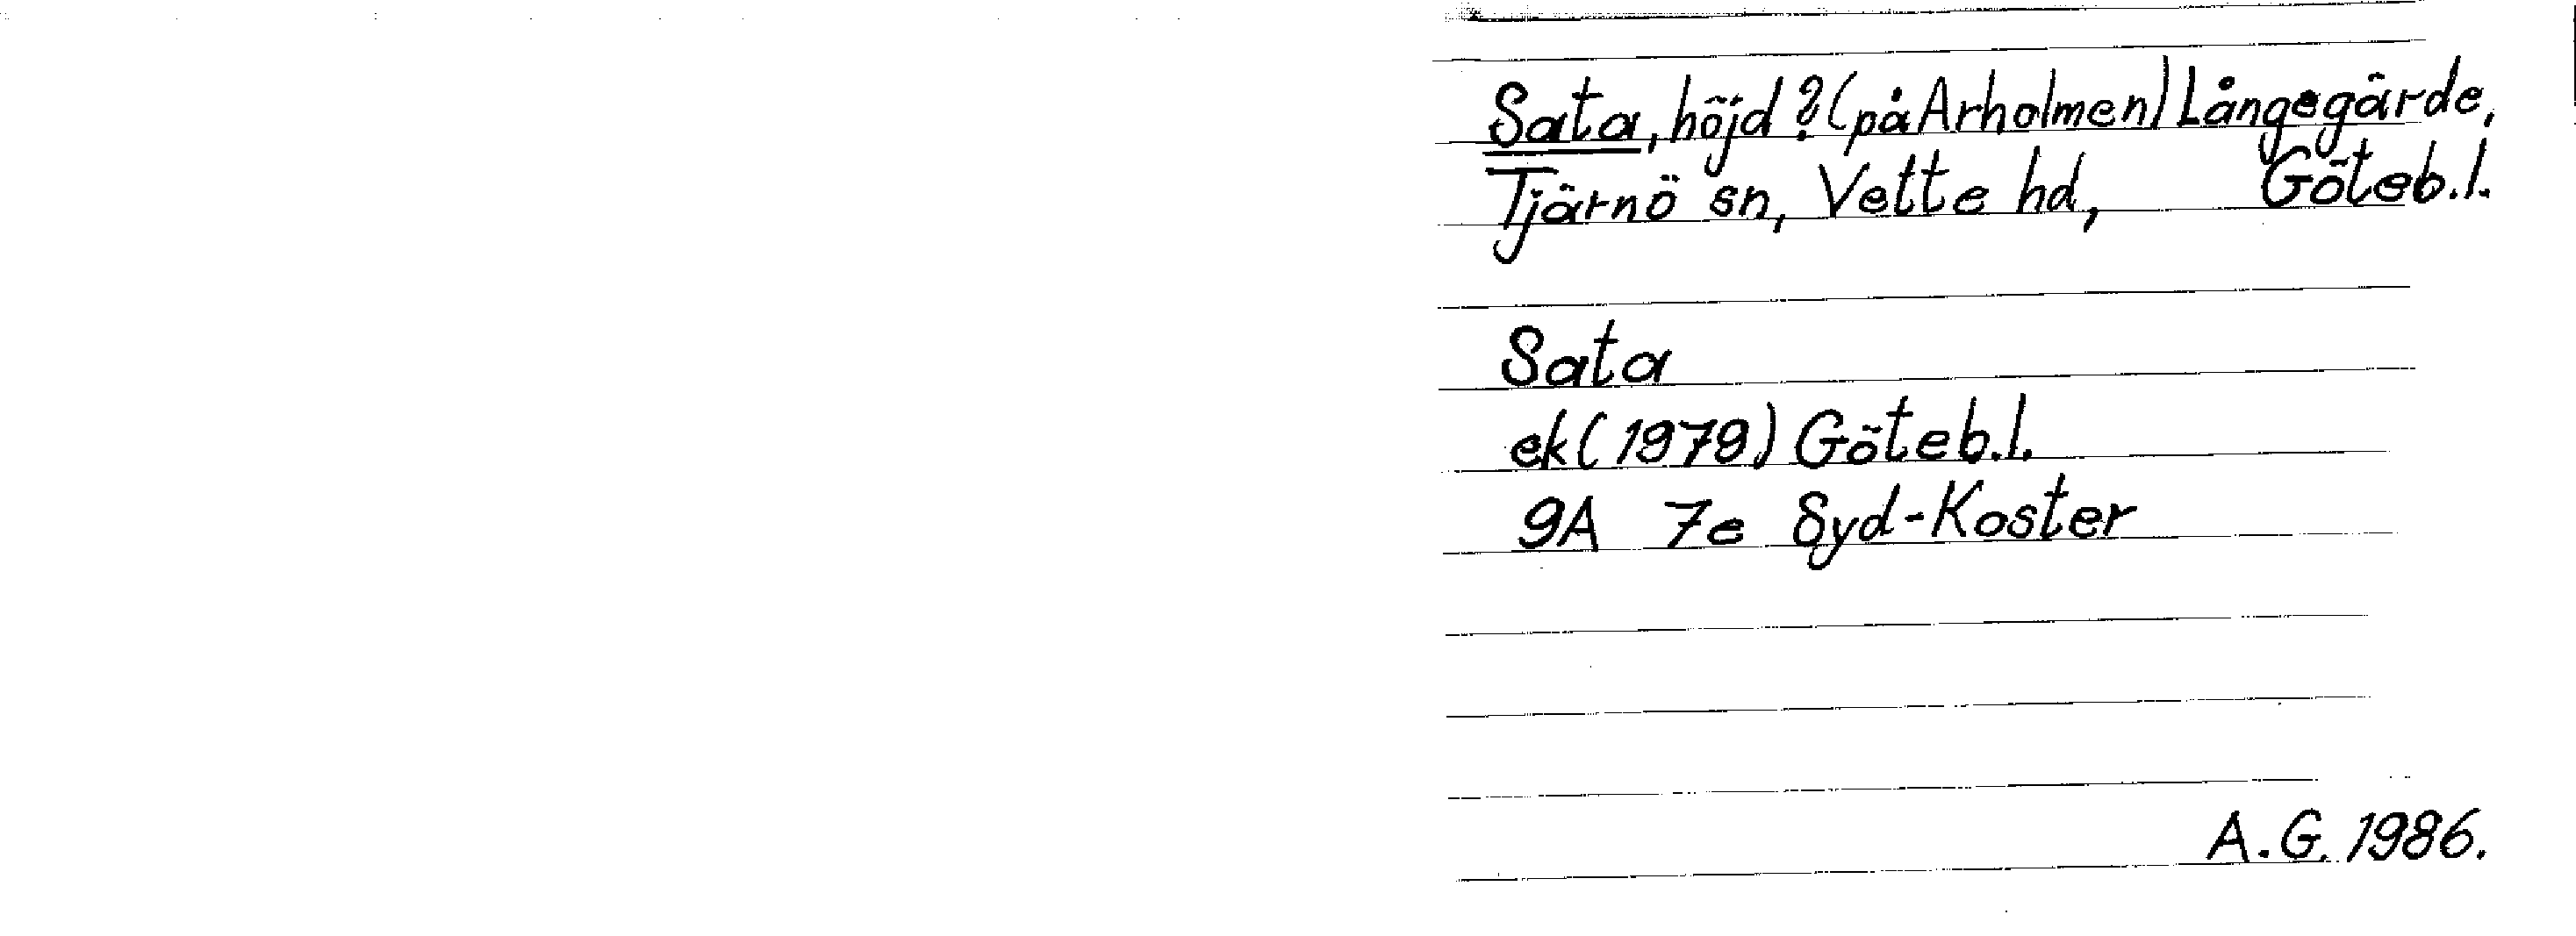 Sata, höjd? (på Arholmen) Långegärde,
Tjärnö sn, Vette hd, Göteb.l.
Sata
ek (1979) Göteb.l.
9A 7e Syd-Koster
A.G. 1986.